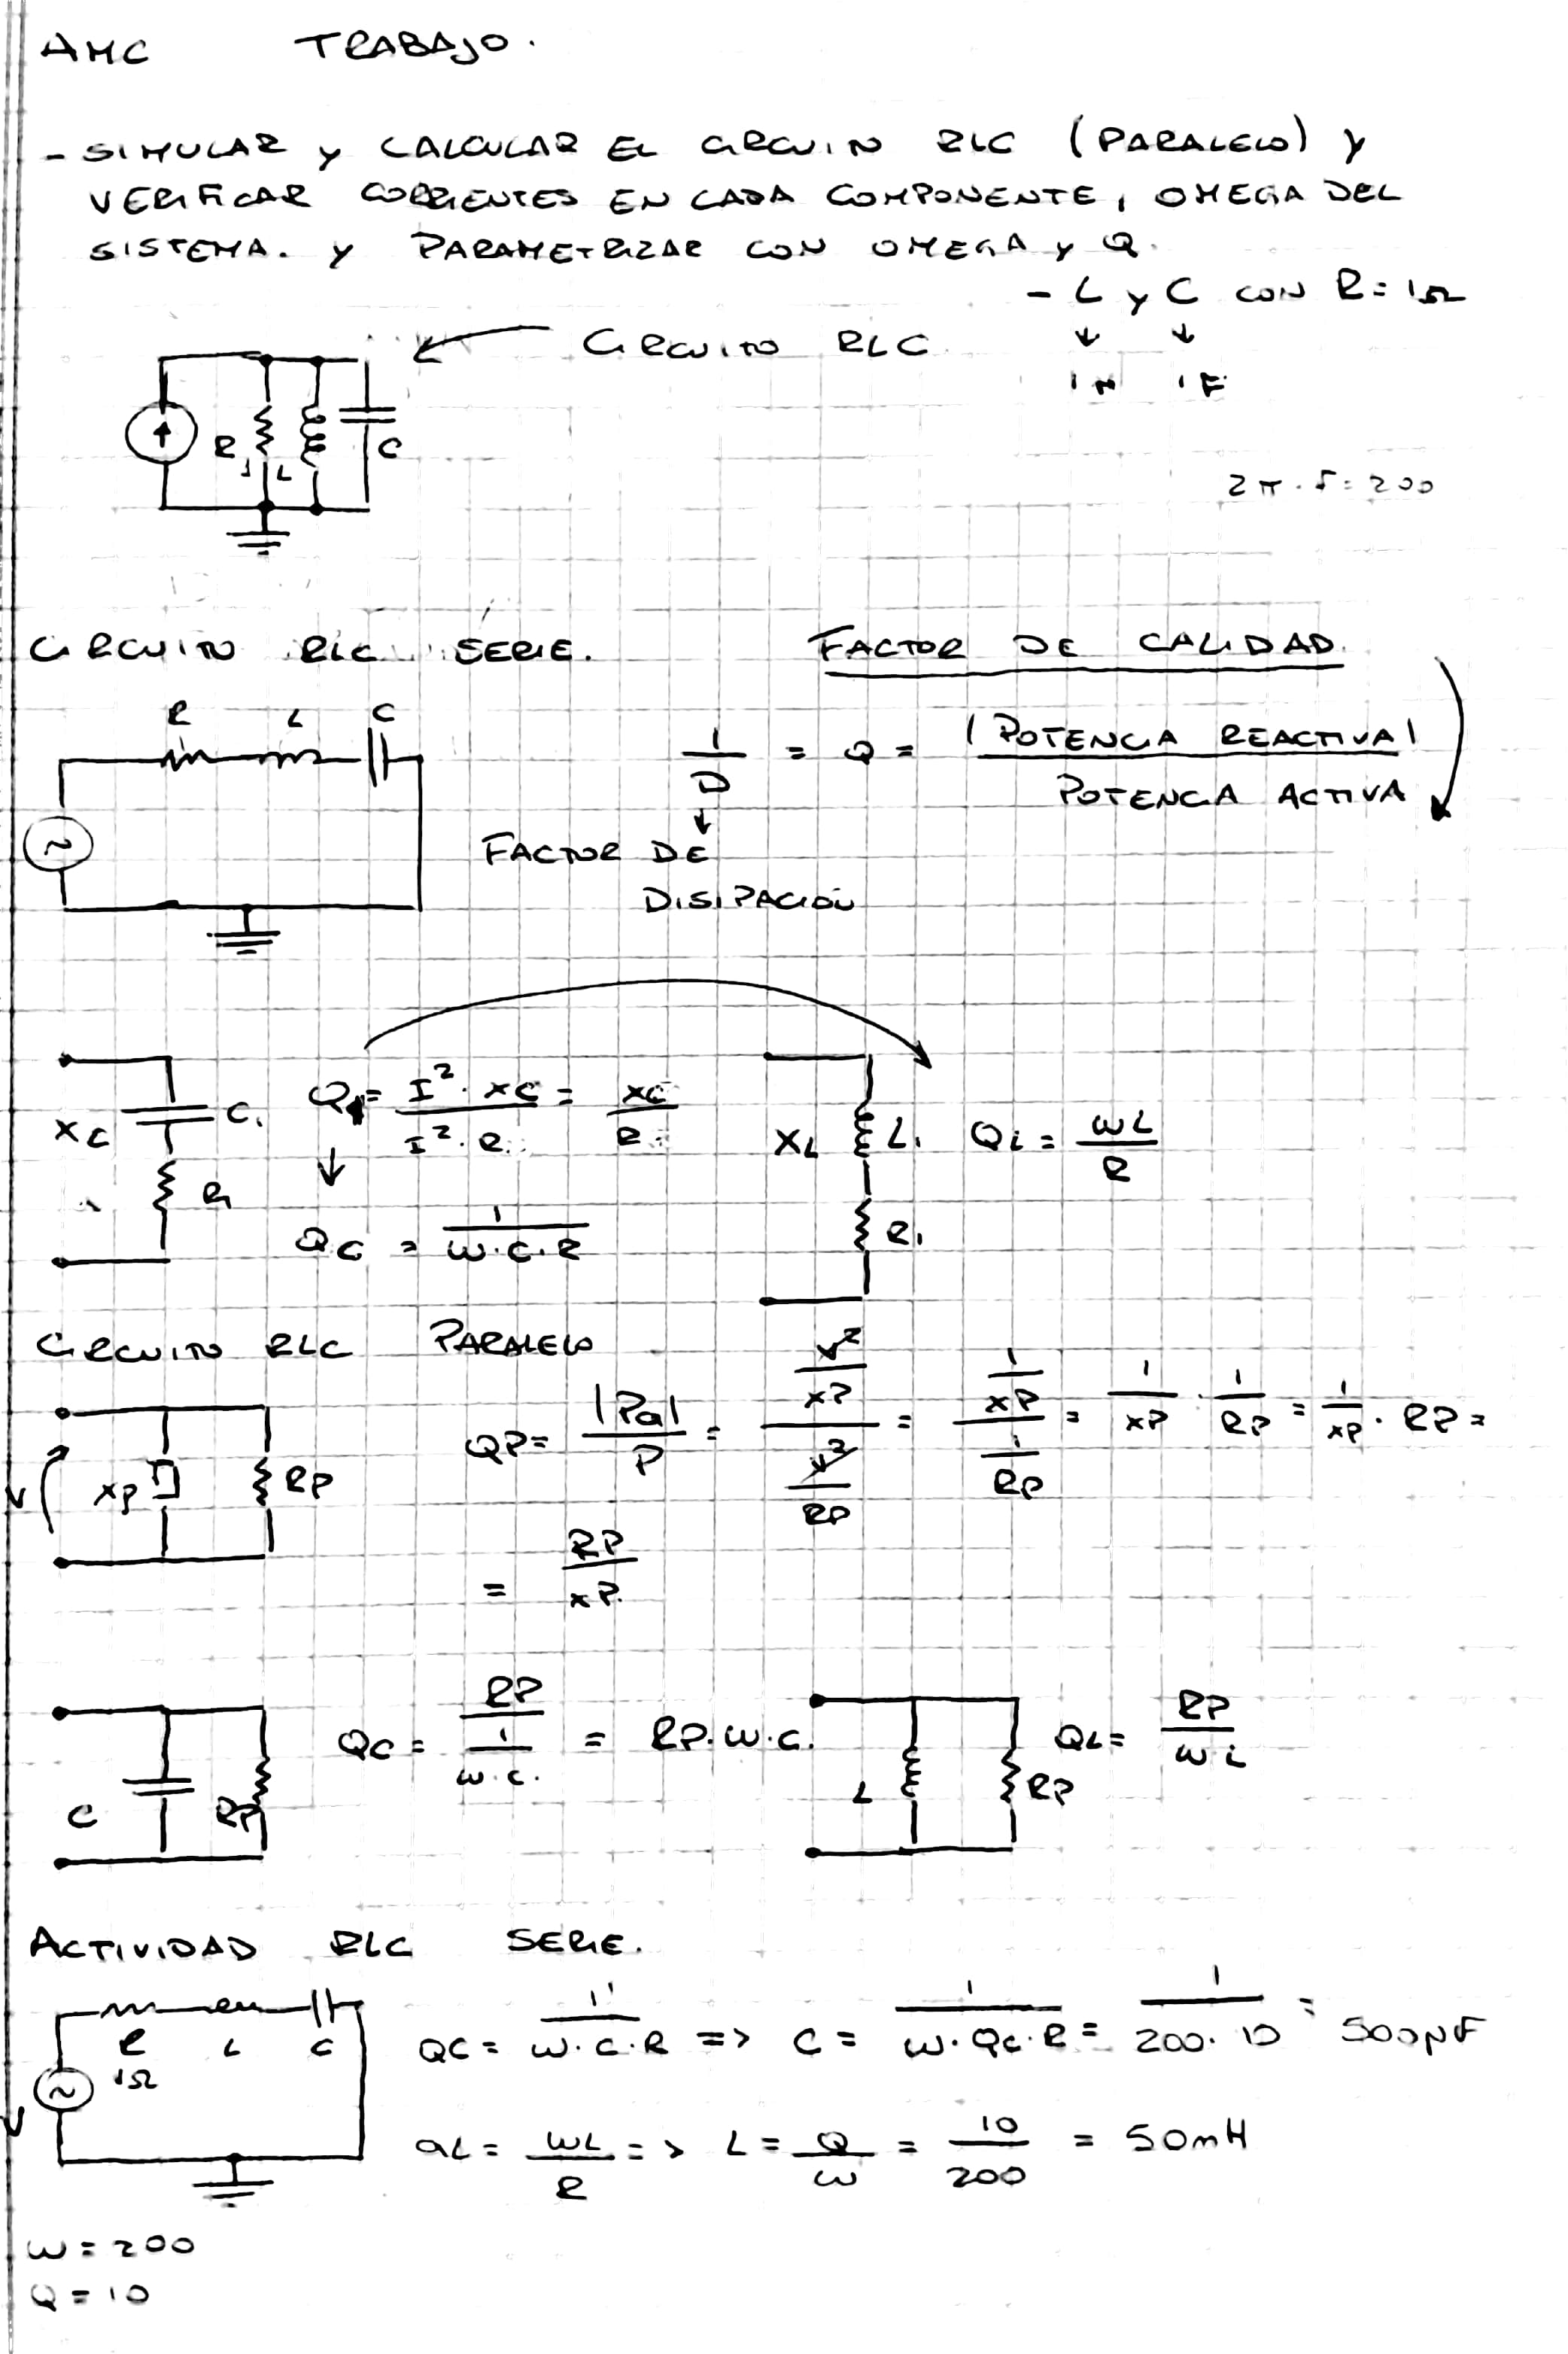 AMC TRABAJO.
- SIMULAR Y CALCULAR EL CIRCUITO RLC (PARALELO) Y
VERIFICAR CORRIENTES EN CADA COMPONENTE, OMEGA DEL
SISTEMA. Y PARAMETRIZAR CON OMEGA Y Q.
- L Y C CON R = 1Ω
↓ ↓
1H 1F
CIRCUITO RLC
R L C
1
2π . f = 200
CIRCUITO RLC SERIE.
FACTOR DE CALIDAD.
R L C
1/D = Q = |POTENCIA REACTIVA| / POTENCIA ACTIVA
↓
FACTOR DE
DISIPACIÓN
XC C1 R1
Q = I². XC / I². R = XC / R
↓
QC = 1 / W.C.R
XL L1 R1
QL = WL / R
CIRCUITO RLC PARALELO
XP RP
QP = |Pa| / P = (V²/XP) / (V²/RP) = (1/XP) / (1/RP) = 1/XP . 1/RP = 1/XP . RP =
= RP / XP.
C RP
QC = RP / (1 / W.C.) = RP.W.C.
L RP
QL = RP / WL
ACTIVIDAD RLC SERIE.
R L C
1Ω
QC = 1 / W.C.R => C = 1 / W.QC.R = 1 / 200.10 = 500µF
QL = WL / R => L = Q / W = 10 / 200 = 50mH
W = 200
Q = 10